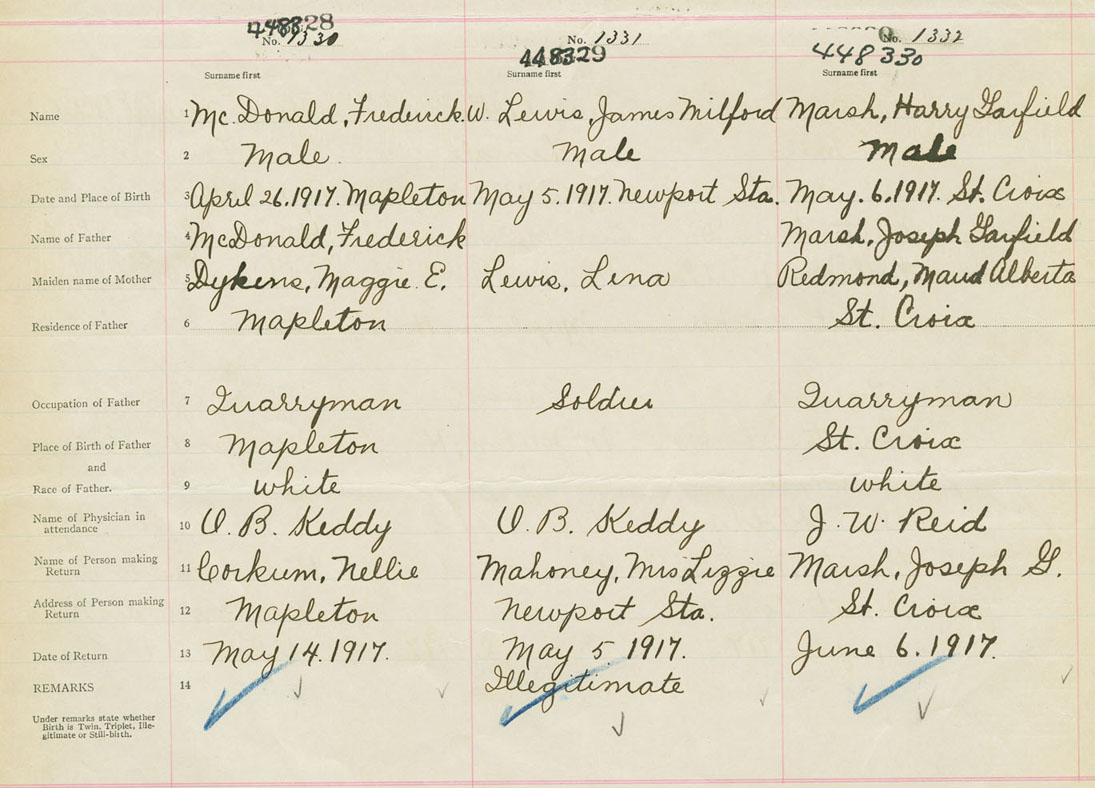 448828 448330
No. 1330 No. 1331 No. 1332
448329
Surname first Surname first Surname first
Name 1 McDonald, Frederick W. Lewis, James Milford Marsh, Harry Garfield
Sex 2 Male. Male Male
Date and Place of Birth 3 April 26. 1917. Mapleton May 5. 1917. Newport Sta. May. 6. 1917. St. Croix
Name of Father 4 McDonald, Frederick Marsh, Joseph Garfield
Maiden name of Mother 5 Dykens, Maggie E. Lewis, Lena Redmond, Maud Alberta
Residence of Father 6 Mapleton St. Croix
Occupation of Father 7 Quarryman Soldier Quarryman
Place of Birth of Father 8 Mapleton St. Croix
and
Race of Father. 9 white white
Name of Physician in
attendance 10 O. B. Keddy O. B. Keddy J. W. Reid
Name of Person making
Return 11 Corkum, Nellie Mahoney, Mrs Lizzie Marsh, Joseph G.
Address of Person making
Return 12 Mapleton Newport Sta. St. Croix
Date of Return 13 May 14. 1917. May 5 1917. June 6. 1917.
REMARKS 14 Illegitimate
Under remarks state whether
Birth is Twin, Triplet, Ille-
gitimate or Still-birth.